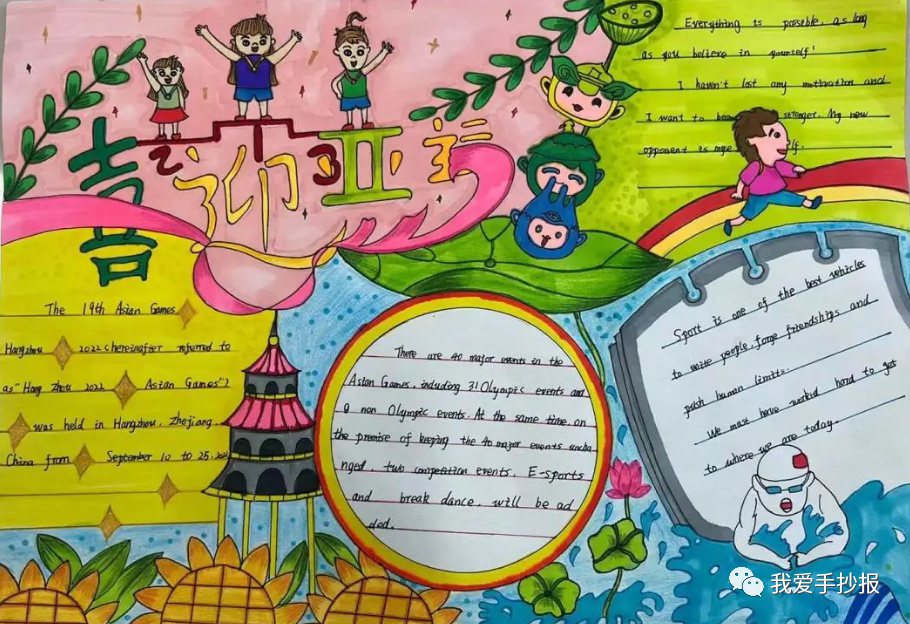 喜迎亚运
2
3
Everything is possible, as long
as you believe in yourself!
I haven't lost any motivation and
I want to stronger. My now
opponent is
The 19th Asian Games
Hangzhou 2022 chereinafter referred to
as "Hang Zhou 2022 Asian Games")
was held in Hangzhou, Zhejiang
China from September 10 to 25,
There are 40 major events in the
Asian Games, including 31 Olympic events and
9 non Olympic events. At the same time, on
the premise of keeping the 40 major events uncha
nged, two competition events, E-sports
and break dance, will be ad
ded.
Sport is one of the best vehicles
to unite people, forge friendships and
push human limits.
We must have worked hard to get
to where we are today.
我爱手抄报